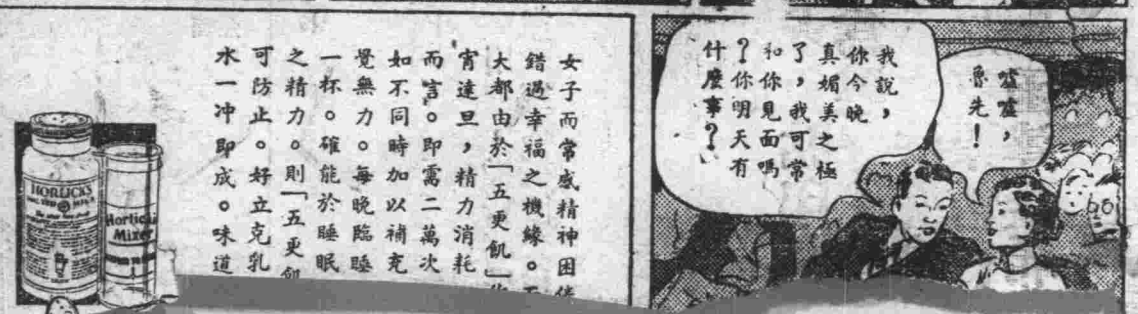 噓噓，
魯先！
我說，
你今晚
真媚美之極
了，我可常
和你見面嗎
？你明天有
什麼事？
女子而常感精神困
錯過幸福之機緣。
大都由於「五更飢」
宵達旦，精力消耗
而言。即需二萬次
如不同時加以補充
覺無力。每晚臨睡
一杯。確能於睡眠
之精力。則「五更飢
可防止。好立克乳
水一冲即成。味道
HORLICK'S
Horlicks
Mixer